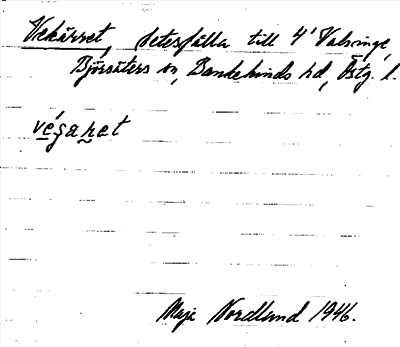 Vekärret, betesfälla till 4¹ Valsinge,
Björsäters sn, Bankekinds hd, Östg. l.
véǥaʀet
Maja Nordlund 1946.